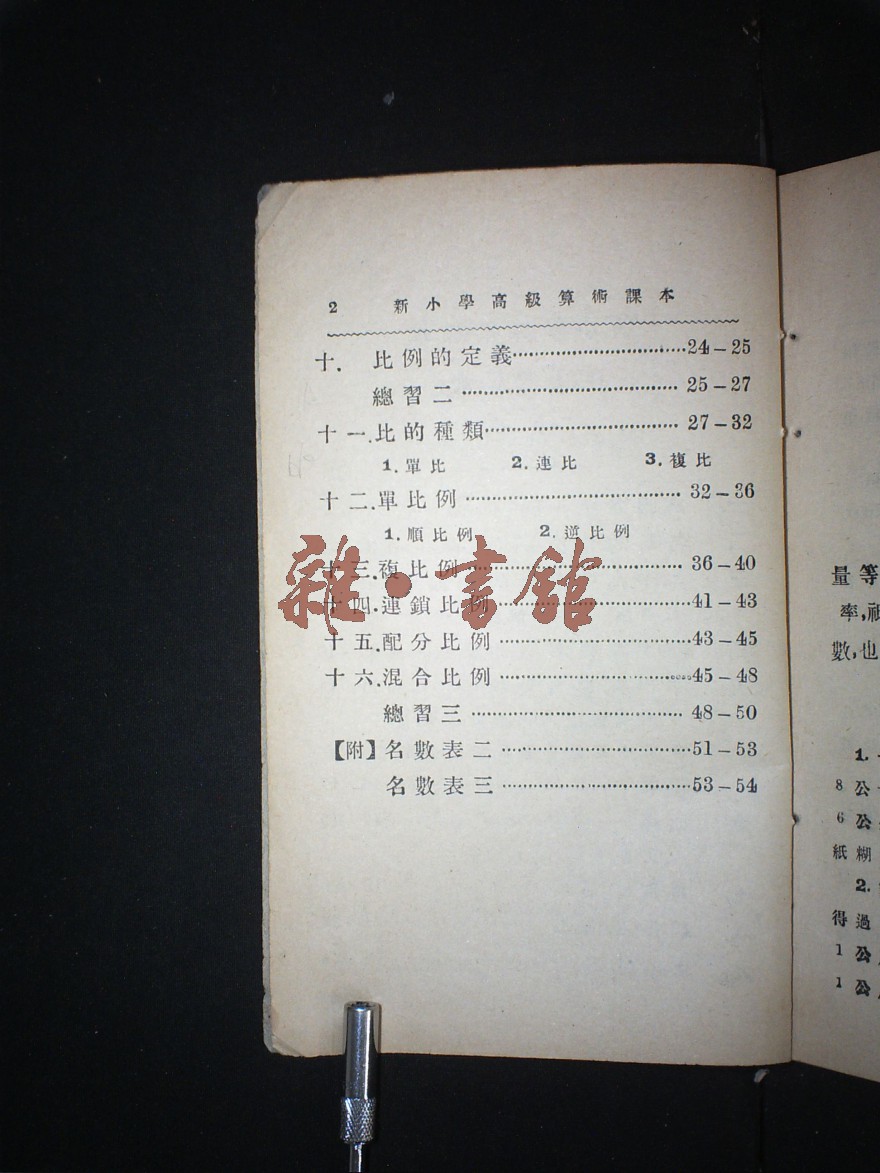 2 新小學高級算術課本
十. 比例的定義………………………24—25
總習二………………………25—27
十一.比的種類………………………27—32
1.單比 2.連比 3.複比
十二.單比例………………………32—36
1.順比例 2.逆比例
十三.複比例………………………36—40
十四.連鎖比例………………………41—43
十五.配分比例………………………43—45
十六.混合比例………………………45—48
總習三………………………48—50
【附】名數表二………………………51—53
名數表三………………………53—54
雜·書館
量等
率,
數,也
1.
8公
6公
紙糊
2.
得過
1公
1公